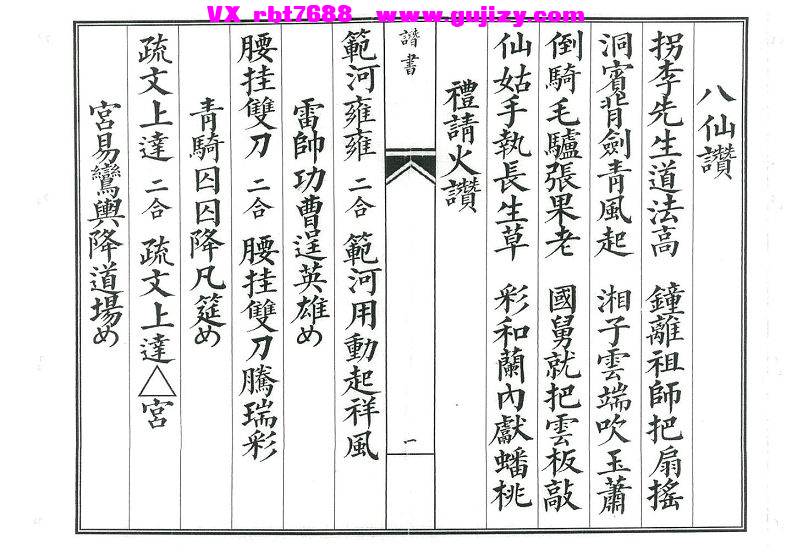 VX rbt7688 www.gujizy.com
八仙讚
拐李先生道法高 鐘離祖師把扇搖
洞賓背劍青風起 湘子雲端吹玉蕭
倒騎毛驢張果老 國舅就把雲板敲
仙姑手執長生草 彩和蘭內獻蟠桃
禮請火讚
諧書
一
範河雍雍 二合 範河用動起祥風
雷帥功曹逞英雄め
腰挂雙刀 二合 腰挂雙刀騰瑞彩
青騎囚囚降凡筵め
疏文上達 二合 疏文上達△宮
宮易鸞輿降道場め